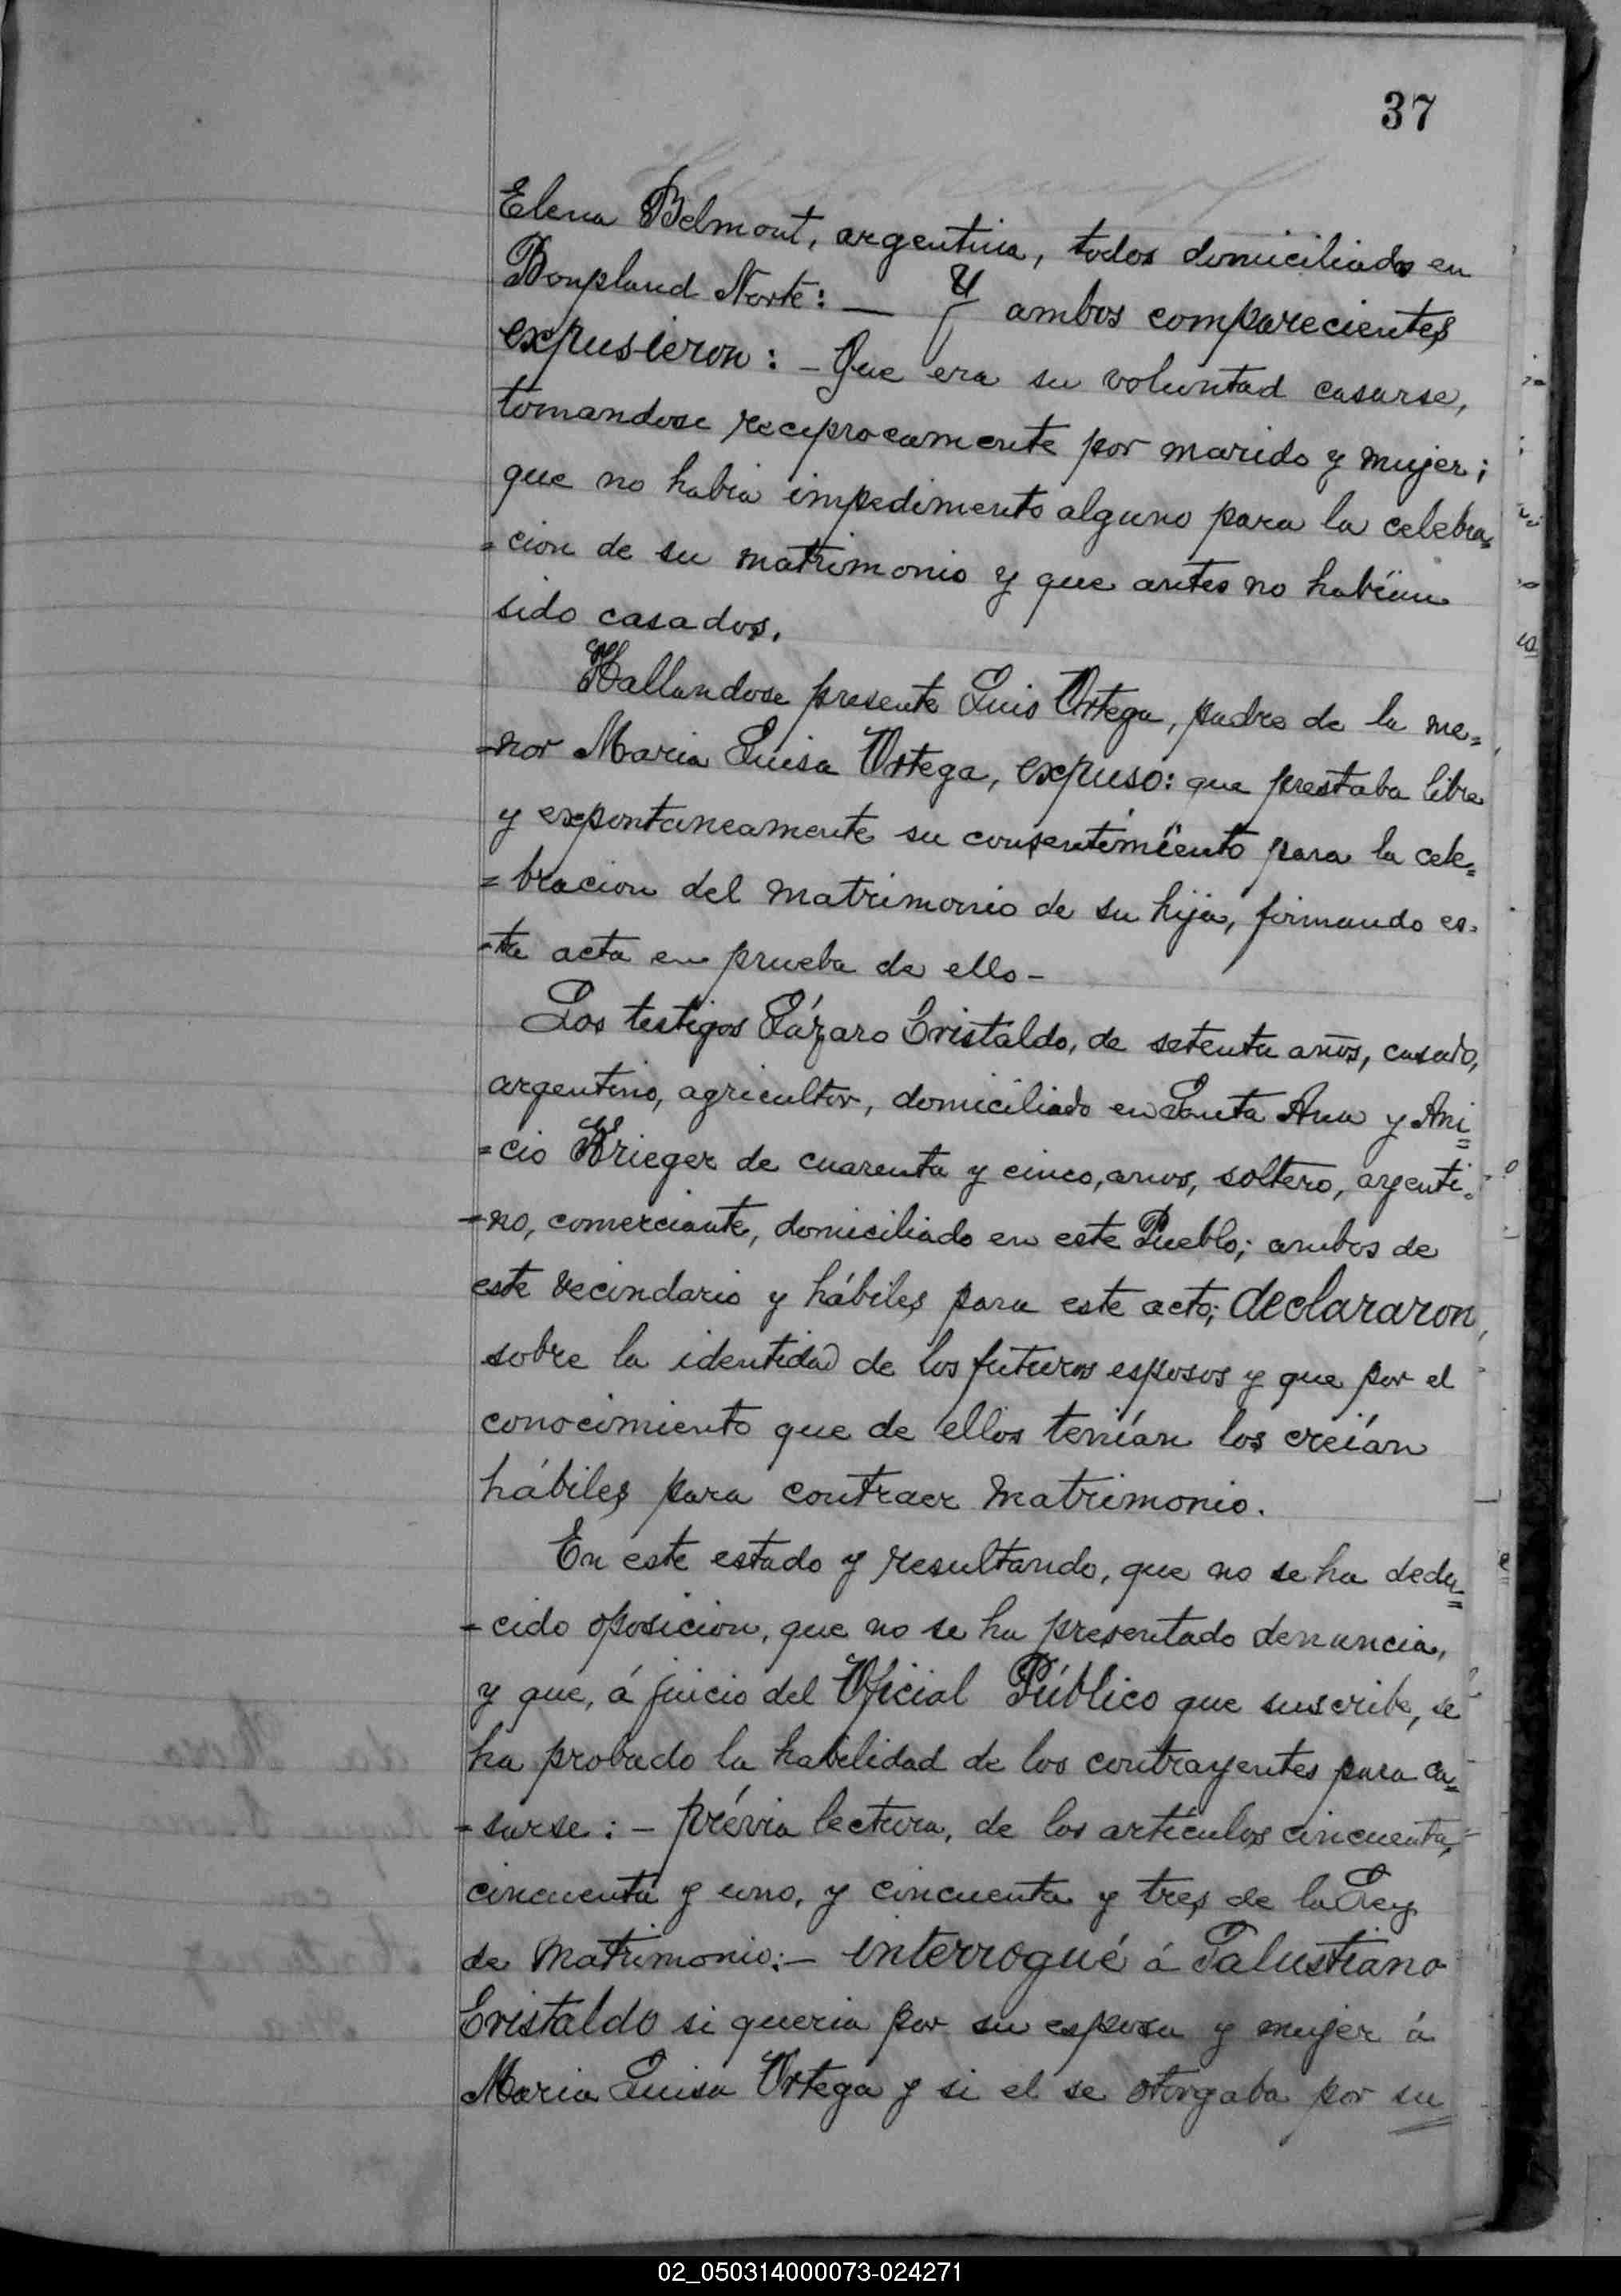 37
Elena Belmont, argentina, todos domiciliados en
Bonpland Norte: — Y ambos comparecientes
expusieron: - Que era su voluntad casarse,
tomandose reciprocamente por marido y mujer;
que no habia impedimento alguno para la celebra=
=cion de su matrimonio y que antes no habian
sido casados.
Hallandose presente Luis Ortega, padre de la me=
=nor Maria Luisa Ortega, expuso: que prestaba libre
y expontaneamente su consentimiento para la cele=
=bracion del matrimonio de su hija, firmando es=
=ta acta en prueba de ello-
Los testigos Lázaro Cristaldo, de setenta años, casado,
argentino, agricultor, domiciliado en Santa Ana y Ani=
=cio Krieger de cuarenta y cinco, años, soltero, argenti=
=no, comerciante, domiciliado en este Pueblo; ambos de
este vecindario y hábiles para este acto; declararon,
sobre la identidad de los futuros esposos y que por el
conocimiento que de ellos tenían los creían
hábiles para contraer matrimonio.
En este estado y resultando, que no se ha dedu=
=cido oposicion, que no se ha presentado denuncia,
y que, á juicio del Oficial Público que suscribe, se
ha probado la habilidad de los contrayentes para ca=
=sarse: - prévia lectura, de los artículos cincuenta,
cincuenta y uno, y cincuenta y tres de la Ley
de Matrimonio:- interrogué á Salustiano
Cristaldo si queria por su esposa y mujer á
Maria Luisa Ortega y si el se otorgaba por su
02_050314000073-024271